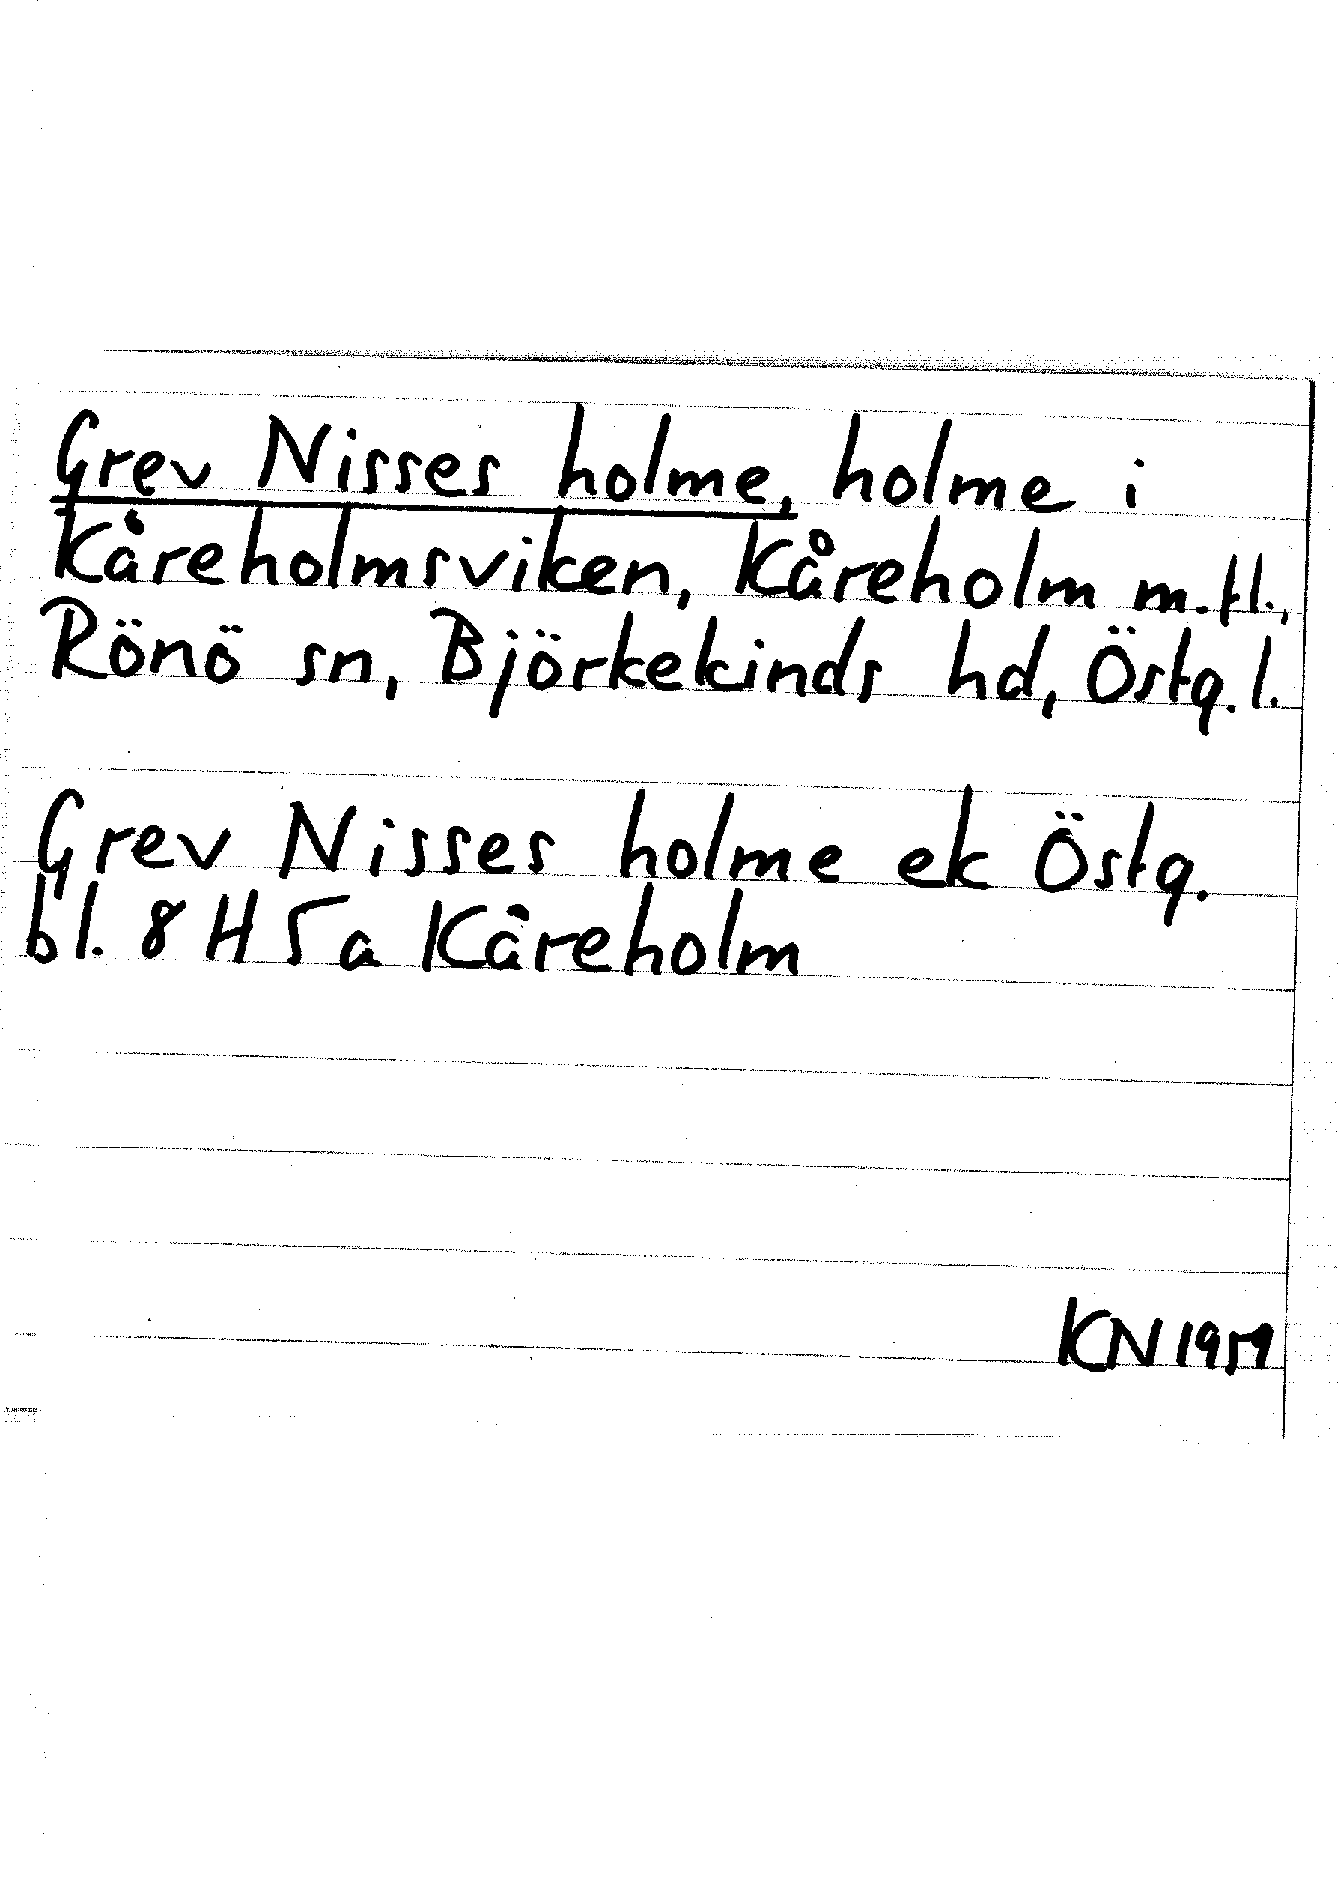 Grev Nisses holme, holme i
Kåreholmsviken, Kåreholm m.fl.,
Rönö sn, Björkekinds hd, Östg. l.
Grev Nisses holme ek Östg.
bl. 8 H 5 a Kåreholm
KN 1959